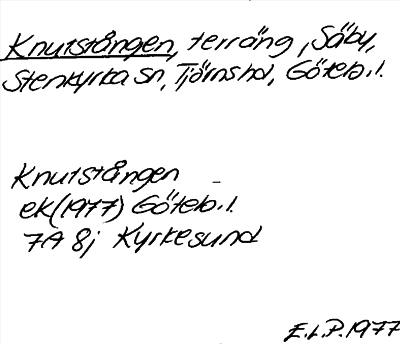 Knutstången, terräng, Säby,
Stenkyrka sn, Tjörns hd, Göteb. l.
Knutstången
ek (1977) Göteb. l.
7A 8j Kyrkesund
E.L.P. 1977